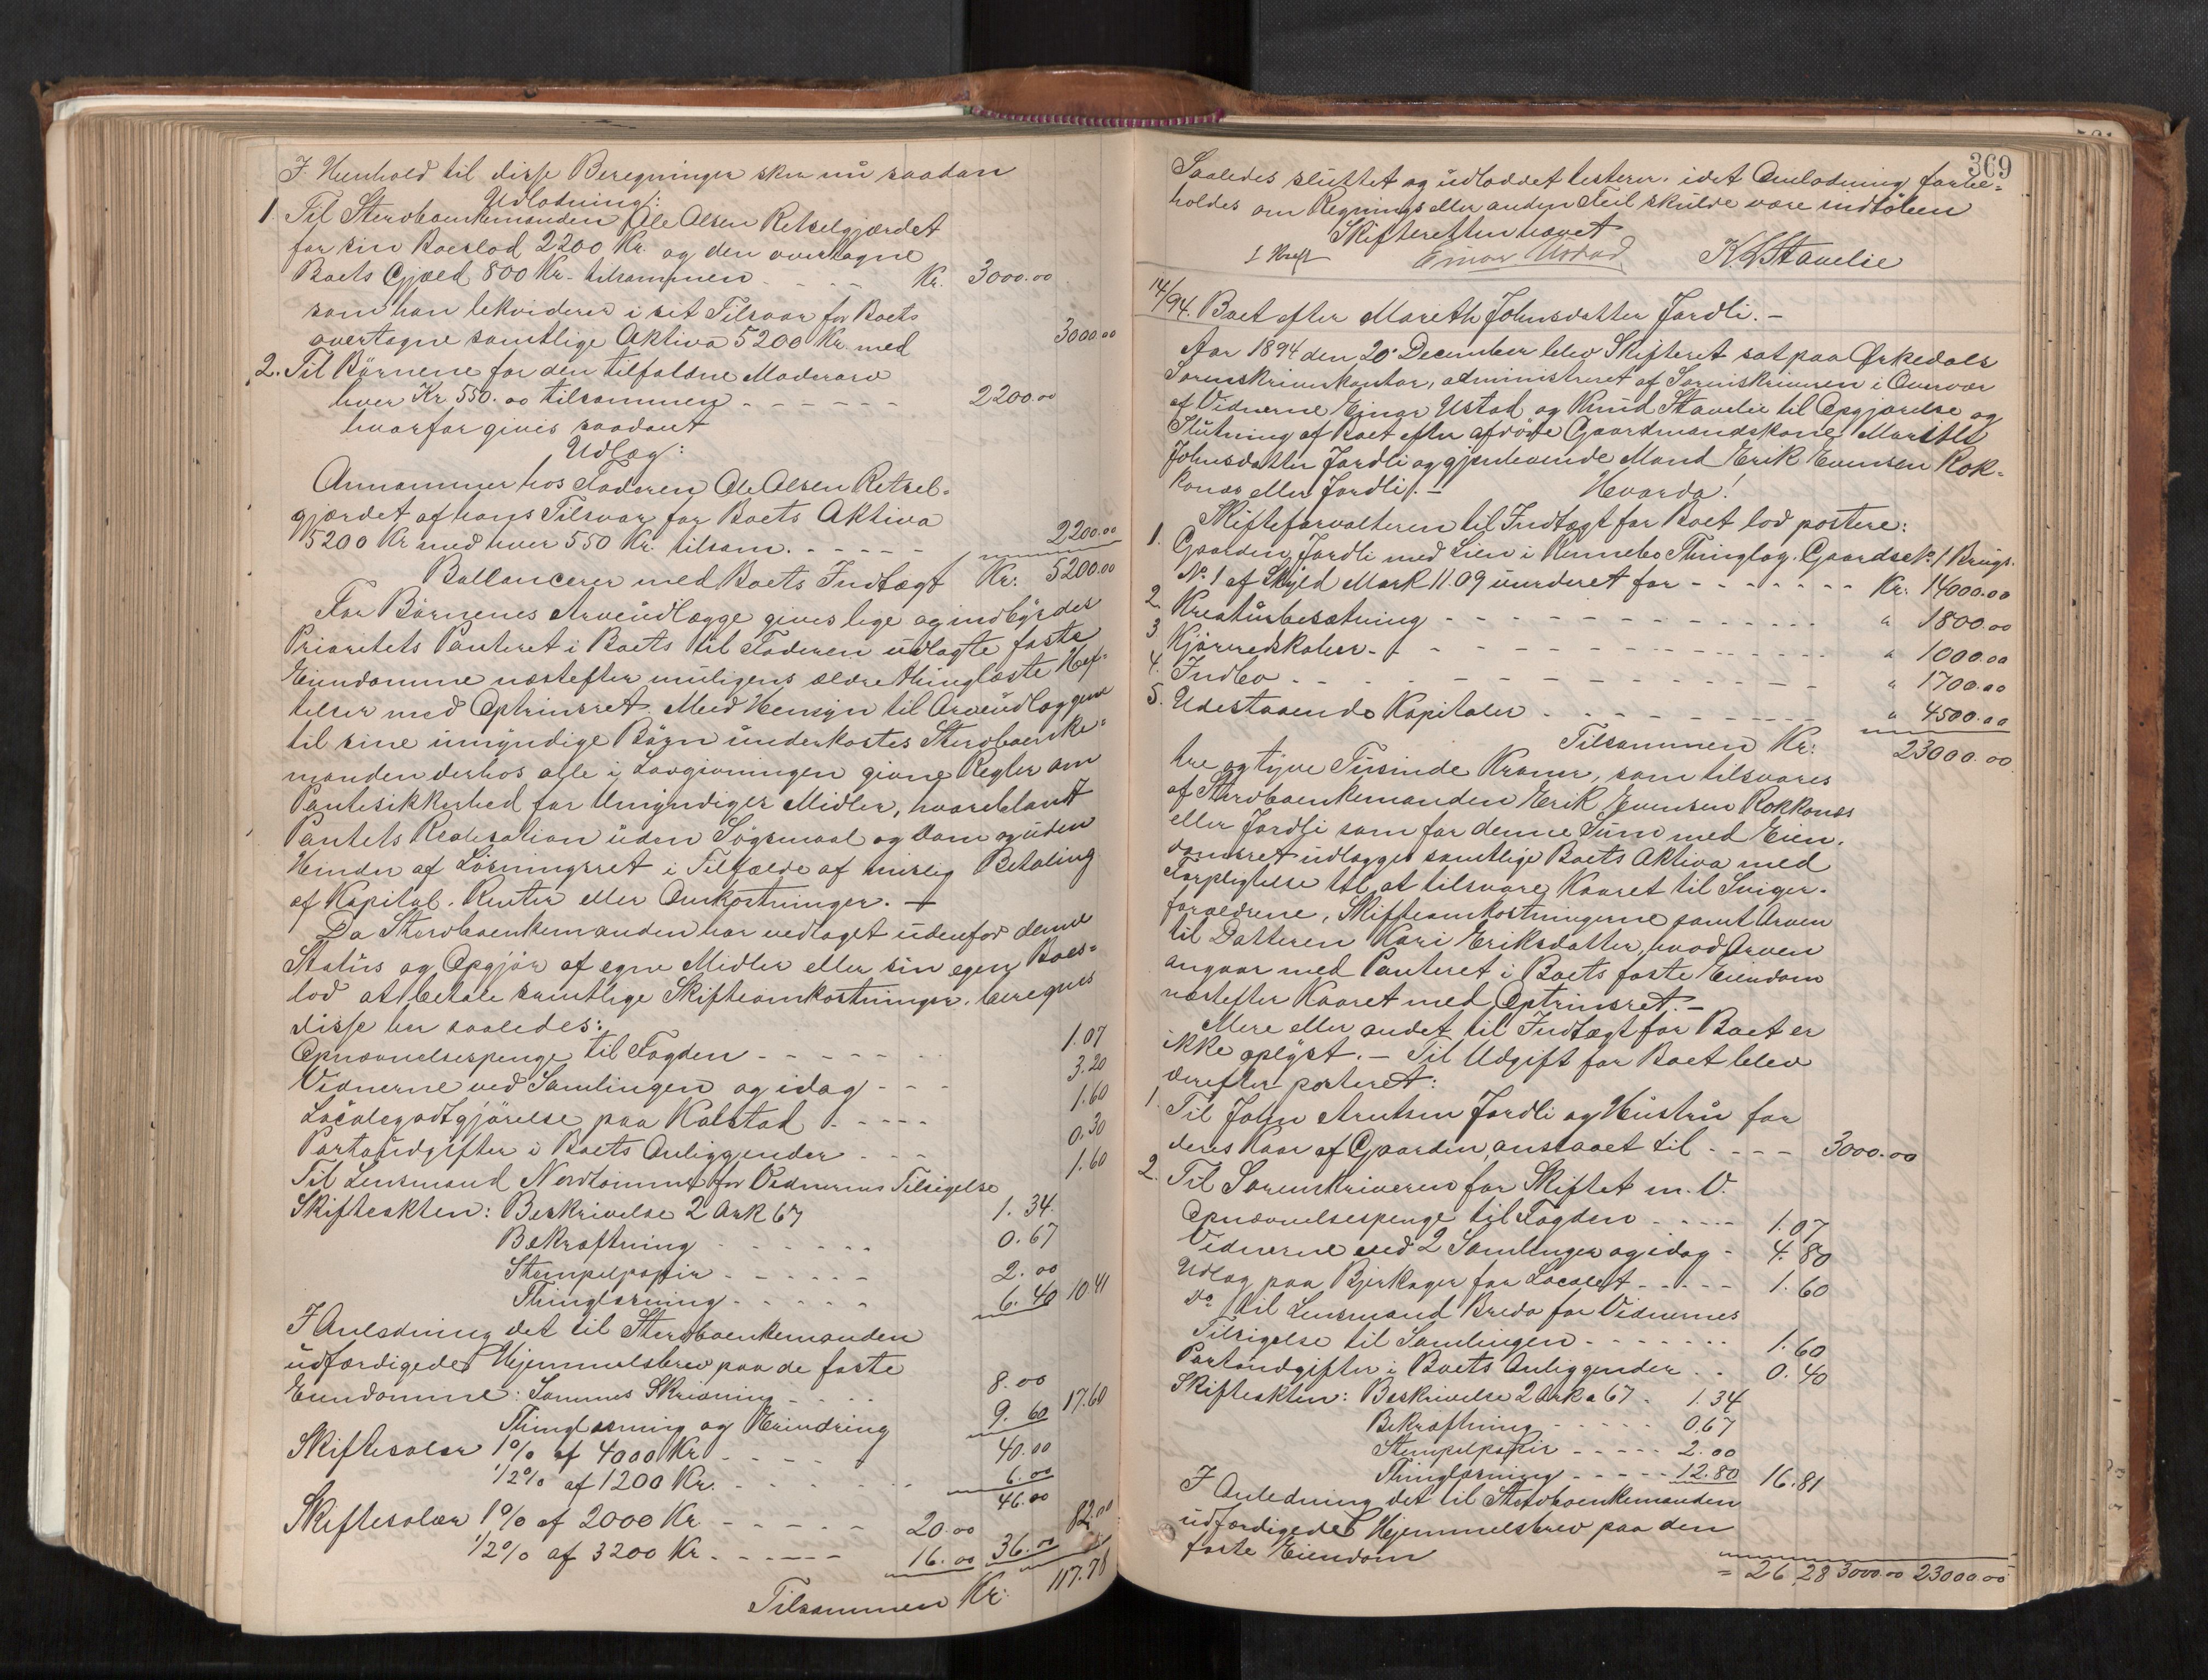 I Henhold til disse Beregninger sker nu saadan
Udlodning:
1. Til Stervboenkemanden Ole Olsen Retselgjærdet
for sin Boeslod 2200 Kr. og den overtagne
Boets Gjæld 800 Kr. tilsammen - - - - Kr. 3000.00
som han lekviderer i sit Tilsvar for Boets
overtagne samtlige Aktiva 5200 Kr. med 3000.00
2. Til Börnene for den tilfaldne Moderarv
hver Kr 550.00 tilsammen - - - - - - 2200.00
hvorfor gives saadant
Udlæg:
Annammer hos Faderen Ole Olsen Retsel-
gjærdet af hans Tilsvar for Boets Aktiva
5200 Kr med hver 550 Kr. tilsam. - - - - - 2200.00
Ballancerer med Boets Indtægt Kr: 5200.00
For Börnenes Arveudlægge gives lige og indbyrdes
Prioritets Panteret i Boets til Faderen udlagte faste
Eiendomme næstefter muligens ældre thinglæste Hef-
telser med Optrinsret. Med Hensyn til Arveudlæggene
til sine umyndige Börn underkastes Stervboenke-
manden derhos alle i Lovgivningen givne Regler om
Pantesikkerhed for Umyndiges Midler, hvoriblandt
Pantets Realisation uden Sögsmaal og Dom og uden
Hinder af Lösningsret i Tilfælde af mislig Betaling
af Kapital, Renter eller Omkostninger. —
Da Stervboenkemanden har vedtaget udenfor denne
Status og Opgjör af egne Midler eller sin egen Boes-
lod at betale samtlige Skifteomkostninger, beregnes
disse her saaledes:
Opnævnelsespenge til Fogden - - - - - - - 1.07
Vidnerne ved Samlingen og idag - - - 3.20
Localegodtgjörelse paa Kalstad - - - - - 1.60
Portoudgifter i Boets Anliggender - - - 0.30
Til Lensmand Nordtömme for Vidnernes Tilsigelse 1.60
Skifteakten: Beskrivelse 2 Ark 67 1.34.
Bekræftning - - - - - - 0.67
Stempelpapir - - - - - - 2.00
Thinglæsning - - - - - 6.40 10.41
I Anledning det til Stervboenkemanden
udfærdigede Hjemmelsbrev paa de faste
Eiendomme: Sammes Skrivning - - - - 8.00
Thinglæsning og Erindring 9.60 17.60
Skiftesalær 1% af 4000 Kr - - - - 40.00
1/2% af 1200 Kr. - - - - - - - 6.00
46.00
Skiftesalær 1% af 2000 Kr - - - - - 20.00 82.00
1/2% af 3200 Kr. - - - - - 16.00 36.00
Tilsammen Kr: 117.78
369
Saaledes sluttet og udloddet testerer, idet Omlodning forbe-
holdes om Regnings eller anden Feil skulde være indlöben
Skifteretten hævet
Einar Ustad K. Stavelie
14/94. Boet efter Mareth Johnsdatter Jordli. —
Aar 1894 den 20 December blev Skifteret sat paa Örkedals
Sorenskriverkontor, administreret af Sorenskriveren i Overvær
af Vidnerne Ejnar Ustad og Knud Stavelie til Opgjørelse og
Slutning af Boet efter afdöde Gaardmandskone Marith
Johnsdatter Jordli og gjenlevende Mand Erik Evensen Rok-
konæs eller Jordli. — Hvorda!
Skifteforvalteren til Indtægt for Boet lod postere:
1. Gaarden Jordli med Lien i Rennebo Thinglag. Gaards No 1 Brugs.
No. 1 af Skyld Mark 11.09 vurderet for - - - - - - - Kr: 14000.00
2. Kreaturbesætning - - - - - - - - - - - - " 1800.00
3. Kjöreredskaber - - - - - - - - - - - - " 1000.00
4. Indbo - - - - - - - - - - - - - - " 1700.00
5. Udestaaende Kapitaler - - - - - - - - - " 4500.00
Tilsammen Kr: 23000.00
tre og tyve Tusinde Kroner, som tilsvares
af Stervboenkemanden Erik Evensen Rokkonæs
eller Jordli som for denne Sum med Eien-
domsret udlægges samtlige Boets Aktiva med
Forpligtelse til at tilsvare Kaaret til Sviger-
forældrene, Skifteomkostningerne samt Arven
til Datteren Kari Eriksdatter, hvad Arven
angaar med Panteret i Boets faste Eiendom
næstefter Kaaret med Optrinsret. —
Mere eller andet til Indtægt for Boet er
ikke oplyst. — Til Udgift for Boet blev
derefter posteret:
1. Til John Arntsen Jordli og Hustru for
deres Kaar af Gaarden, anslaaet til - - - - 3000.00
2. Til Sorenskriveren for Skiftet m. V.
Opnævnelsespenge til Fogden - - - - - 1.07
Vidnerne ved 2 Samlinger og idag - 4.80
Udlæg paa Bjerkager for Localet - - - - - 1.60
do til Lensmand Breda for Vidnernes
Tilsigelse til Samlingen - - - - - - - 1.60
Portoudgifter i Boets Anliggender - - 0.40
Skifteakten: Beskrivelse 2 Ark a 67 - 1.34
Bekræftning - - - - - 0.67
Stempelpapir - - - - - 2.00
Thinglæsning - - - - - 12.80 16.81
I Anledning det til Stervboenkemanden
udfærdigede Hjemmelsbrev paa den
faste Eiendom
= 26,28 3000.00 23000.00